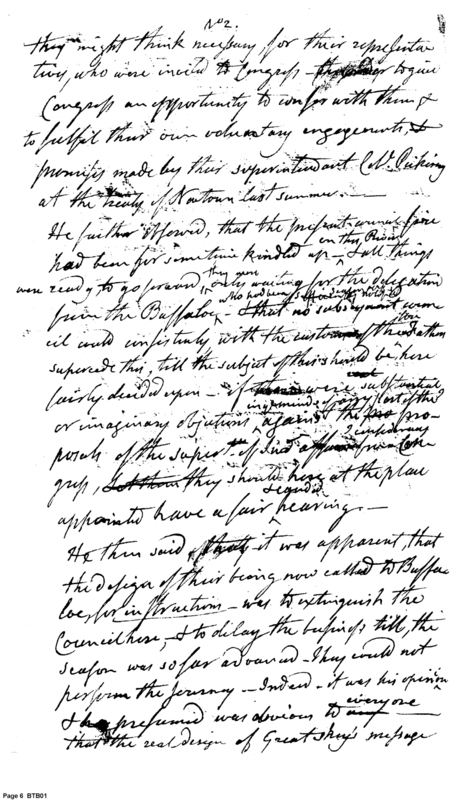 No 2.
they might think necessary, for their representa
tives, who were invited to Congress to give
Congress an opportunity to confer with them &
to fulfil their own voluntary engagements, &
promises made by their superintendant Col. Pickring
at the treaty of Newtown last summer. —
He further observed, that the present council fire
had been for sometime kindled up on this River & all things
were ready to go forward they were only waiting for the delegation
from the Buffaloe who had been sufficiently notified – that no subsequent coun
cil could consistently with the customs of the Indian
supercede this, till the subject of this should be here
fairly decided upon – if there were substantial
or imaginary objections in the minds of any part of the against the pro-
posals of the superdt of Ind affairs from Con
gress, they should here at the place
appointed have a fair & candid hearing. —
He then said, it was apparent, that
the design of their being now called to Buffae
loe, for instructions – was to extinguish the
Council here, – & to delay the business till, the
season was so far advanced – they could not
perform the journey. – Indeed – it was his opinion
& he presumed was obvious to everyone
that the real design of Great sky's message
Page 6 BTB01